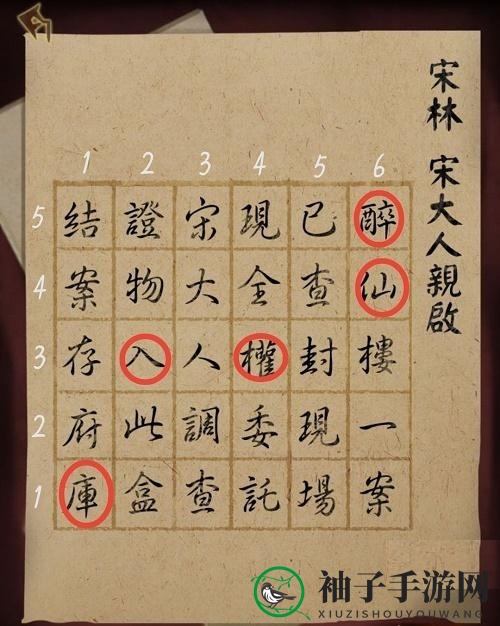 宋林 宋大人親啟
1 2 3 4 5 6
5 結 證 宋 現 已 醉
4 案 物 大 全 查 仙
3 存 入 人 權 封 樓
2 府 此 調 委 現 一
1 庫 盒 查 託 場 案
袖子手游网
XIUZISHOUYOUWANG